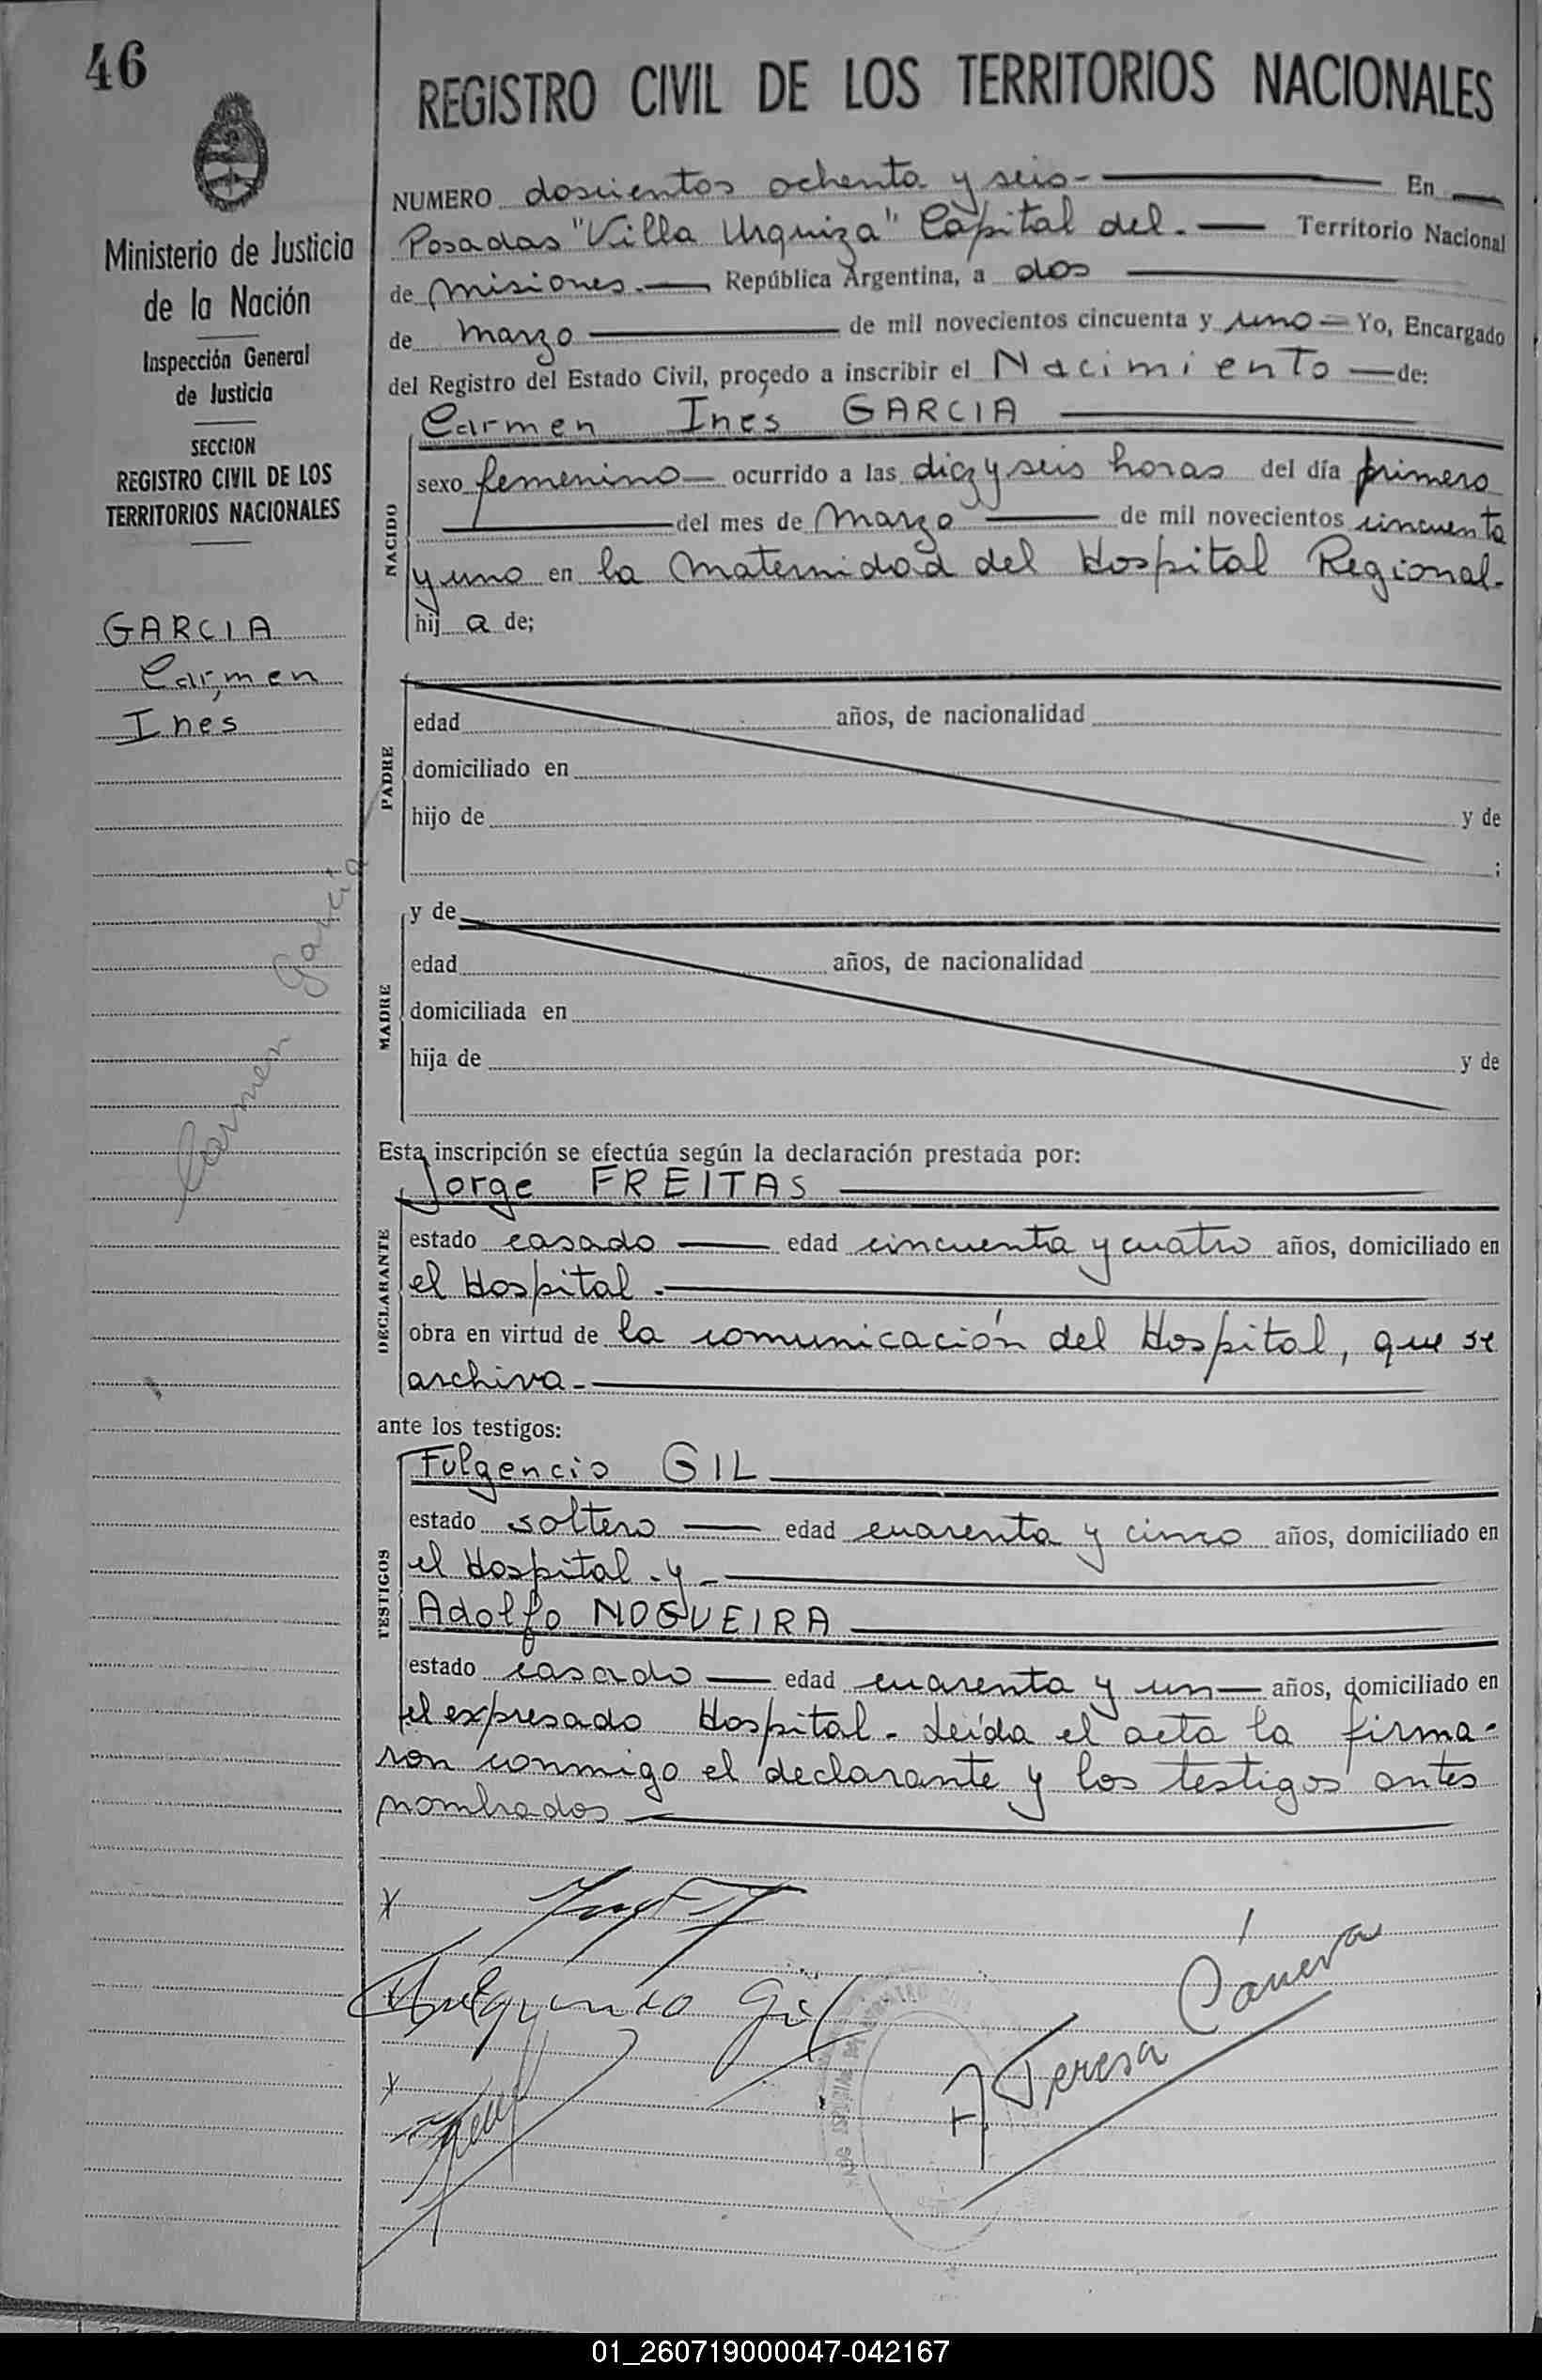 46
REGISTRO CIVIL DE LOS TERRITORIOS NACIONALES
Ministerio de Justicia
de la Nación
Inspección General
de Justicia
SECCION
REGISTRO CIVIL DE LOS
TERRITORIOS NACIONALES
GARCIA
Carmen
Inés
Carmen García
NUMERO doscientos ochenta y seis- En
Posadas "Villa Urquiza" Capital del.- Territorio Nacional
de misiones.- República Argentina, a dos
de marzo de mil novecientos cincuenta y uno - Yo, Encargado
del Registro del Estado Civil, procedo a inscribir el Nacimiento - de:
NACIDO
Carmen Inés GARCIA
sexo femenino- ocurrido a las diez y seis horas del día primero
del mes de marzo de mil novecientos cincuenta
y uno en la maternidad del Hospital Regional.
hij a de;
PADRE
edad años, de nacionalidad
domiciliado en
hijo de y de
;
MADRE
y de
edad años, de nacionalidad
domiciliada en
hija de y de
Esta inscripción se efectúa según la declaración prestada por:
DECLARANTE
Jorge FREITAS
estado casado edad cincuenta y cuatro años, domiciliado en
el Hospital.-
obra en virtud de la comunicación del Hospital, que se
archiva.-
ante los testigos:
TESTIGOS
Fulgencio GIL
estado soltero edad cuarenta y cinco años, domiciliado en
el Hospital.-y-
Adolfo NOGUEIRA
estado casado edad cuarenta y un años, domiciliado en
el expresado Hospital.- Leída el acta la firma-
ron conmigo el declarante y los testigos antes
nombrados
Fulgencio Gil
A. Teresa Cáneva
01_260719000047-042167